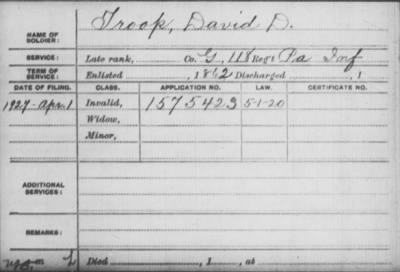 NAME OF SOLDIER: Troop, David D.
SERVICE: Late rank, Co. G, 118 Reg't Pa Inf
TERM OF SERVICE: Enlisted , 1862 Discharged , 1
DATE OF FILING. CLASS. APPLICATION NO. LAW. CERTIFICATE NO.
1927-Apr. 1 Invalid, 1575423 5-1-20
Widow,
Minor,
ADDITIONAL SERVICES:
REMARKS:
Died , 1 , at